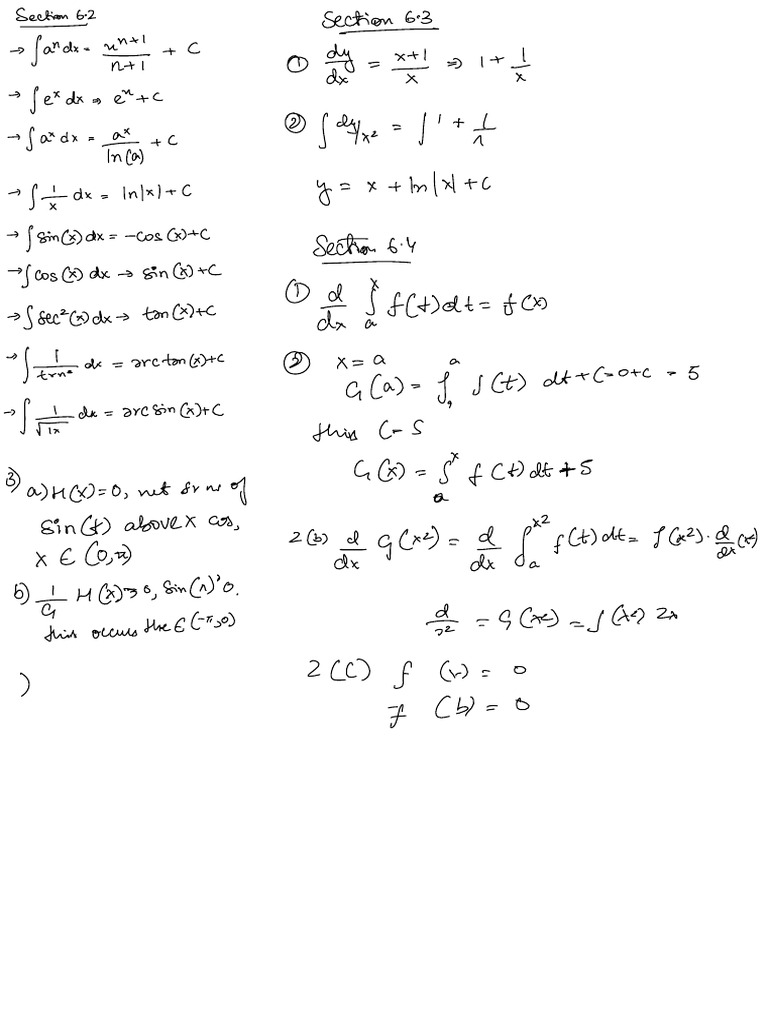 Section 6.2
→ ∫aⁿdx = xⁿ⁺¹/n+1 + C
→ ∫eˣ dx ⇒ eⁿ + C
→ ∫aˣ dx = aˣ/ln(a) + C
→ ∫1/x dx = ln|x| + C
→ ∫sin(x)dx = -cos(x)+C
→ ∫cos(x) dx → sin(x)+C
→ ∫sec²(x)dx → tan(x)+C
→ ∫ dx = arctan(x)+C
→ ∫1/√1x dx = arcsin(x)+C
3) a) H(x)=0, of
sin(t) above x
x ∈ (0,π)
b) 1/G H(x) 0, sin(x) 0.
this occurs the ∈ (-π,0)
)
Section 6.3
① dy/dx = x+1/x ⇒ 1 + 1/x
② ∫ dy/x² = ∫ 1 + 1/n
y = x + ln|x| + C
Section 6.4
① d/dx ∫ₐˣ f(t)dt = f(x)
② x = a
G(a) = ∫ᵃ f(t) dt + C = 0+C = 5
this C = 5
G(x) = ∫ₐˣ f(t)dt + 5
2(b) d/dx G(x²) = d/dx ∫ₐˣ² f(t)dt = f(x²)· d/dx (x²)
= G(x²) = f(x²) 2x
2(C) f = 0
f (b) = 0